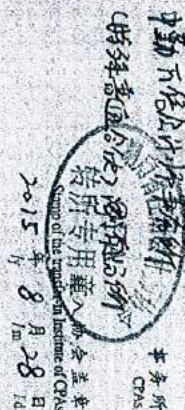 中勤万信会计师事务所
事务所
CPAs
(特殊普通合伙)
分所
转所专用章
协会盖章
Stamp of the transfer-in Institute of CPAs
2015 年 8 月 28 日
/y /m /d